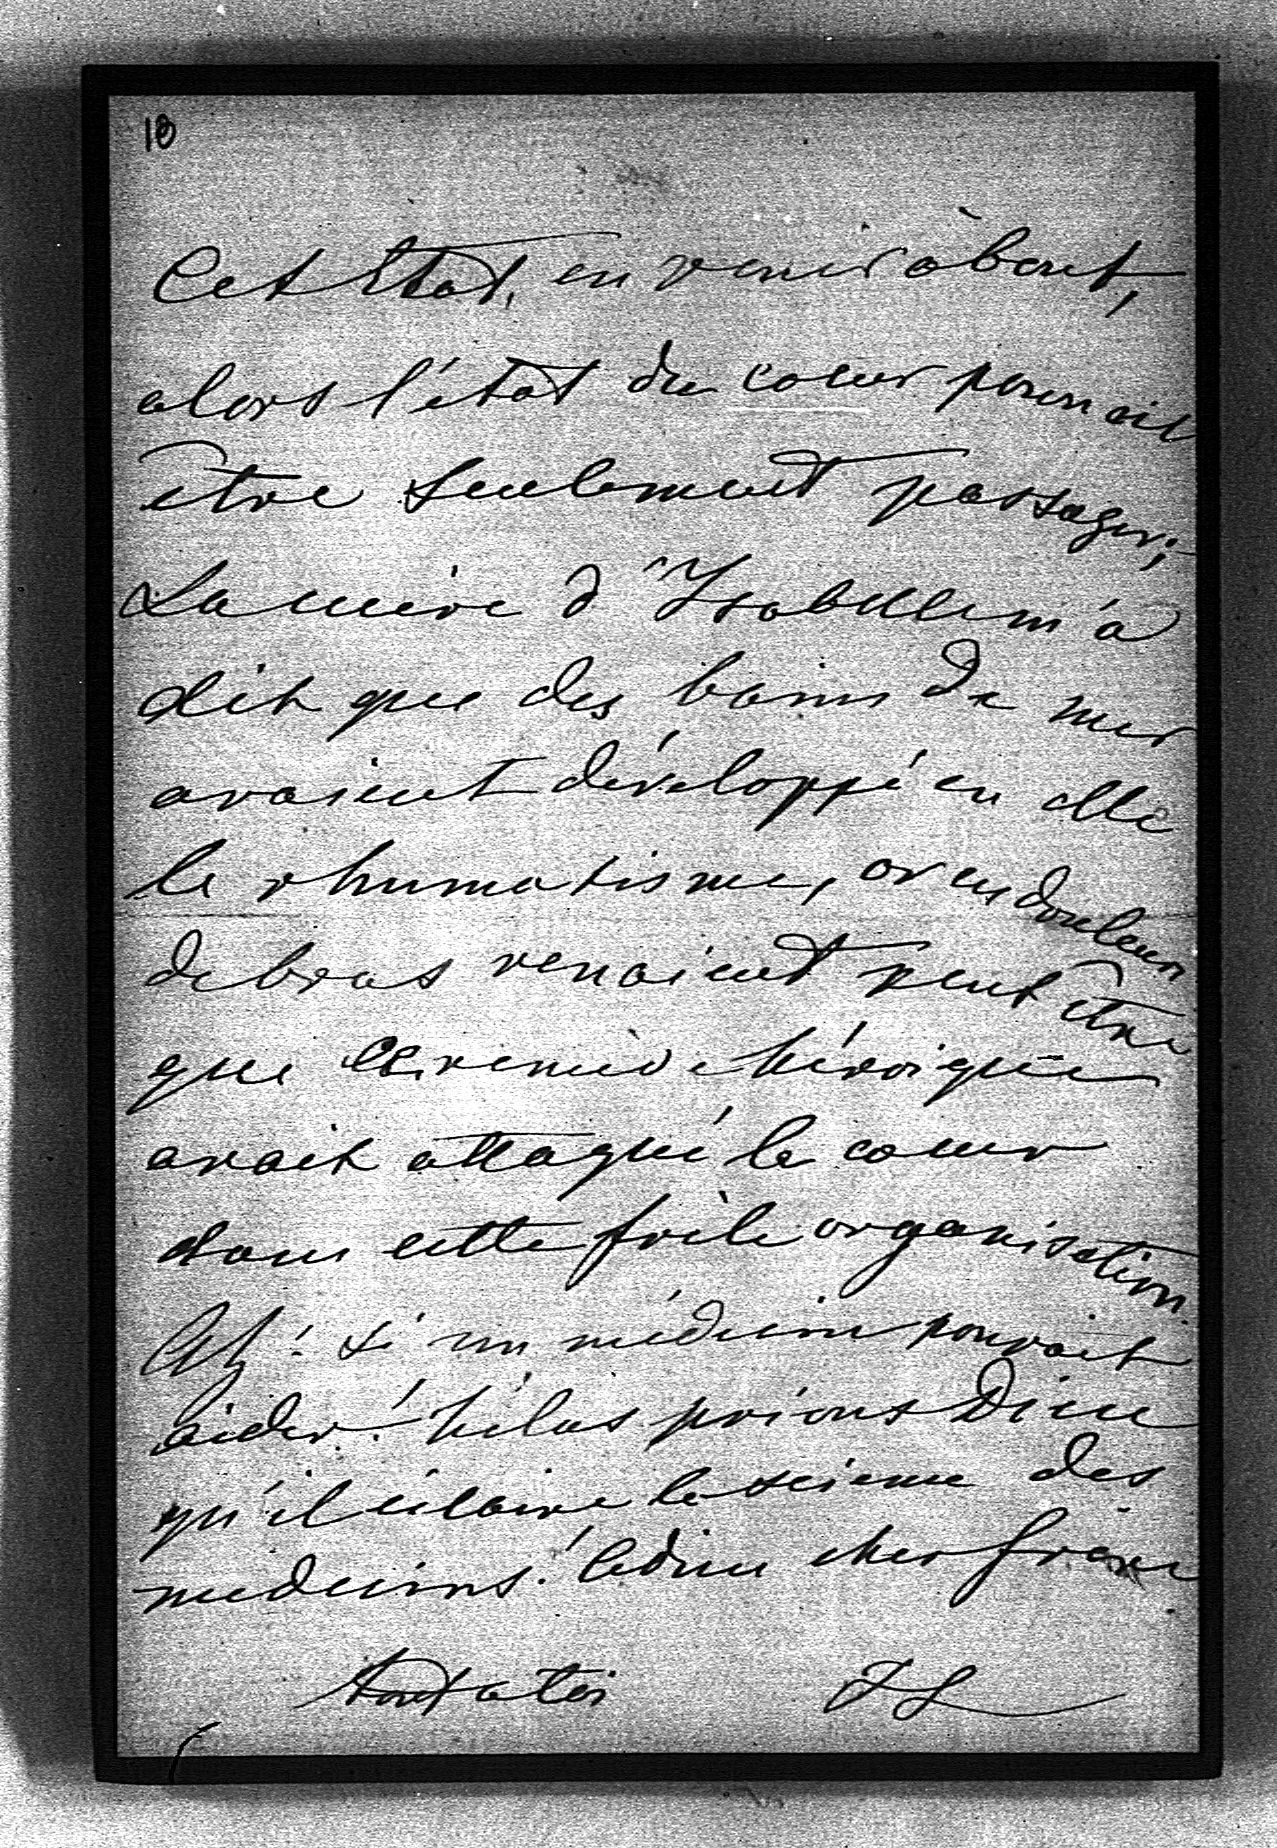 18
Cet État, en venir à bout,
alors l'état du cœur pourrait
être seulement passager;
La mère d'Isabelle m'a
dit que des bains de mer
avaient développé en elle
le rhumatisme, or ces douleurs
de bras venaient peut être
que ce remède héroïque
avait attaqué le cœur
dans cette frèle organisation.
Ah! si un médecin pouvait
aider! hélas prions Dieu
qu'il éclaire la science des
medecins! Adieu cher frère
tout a toi JL